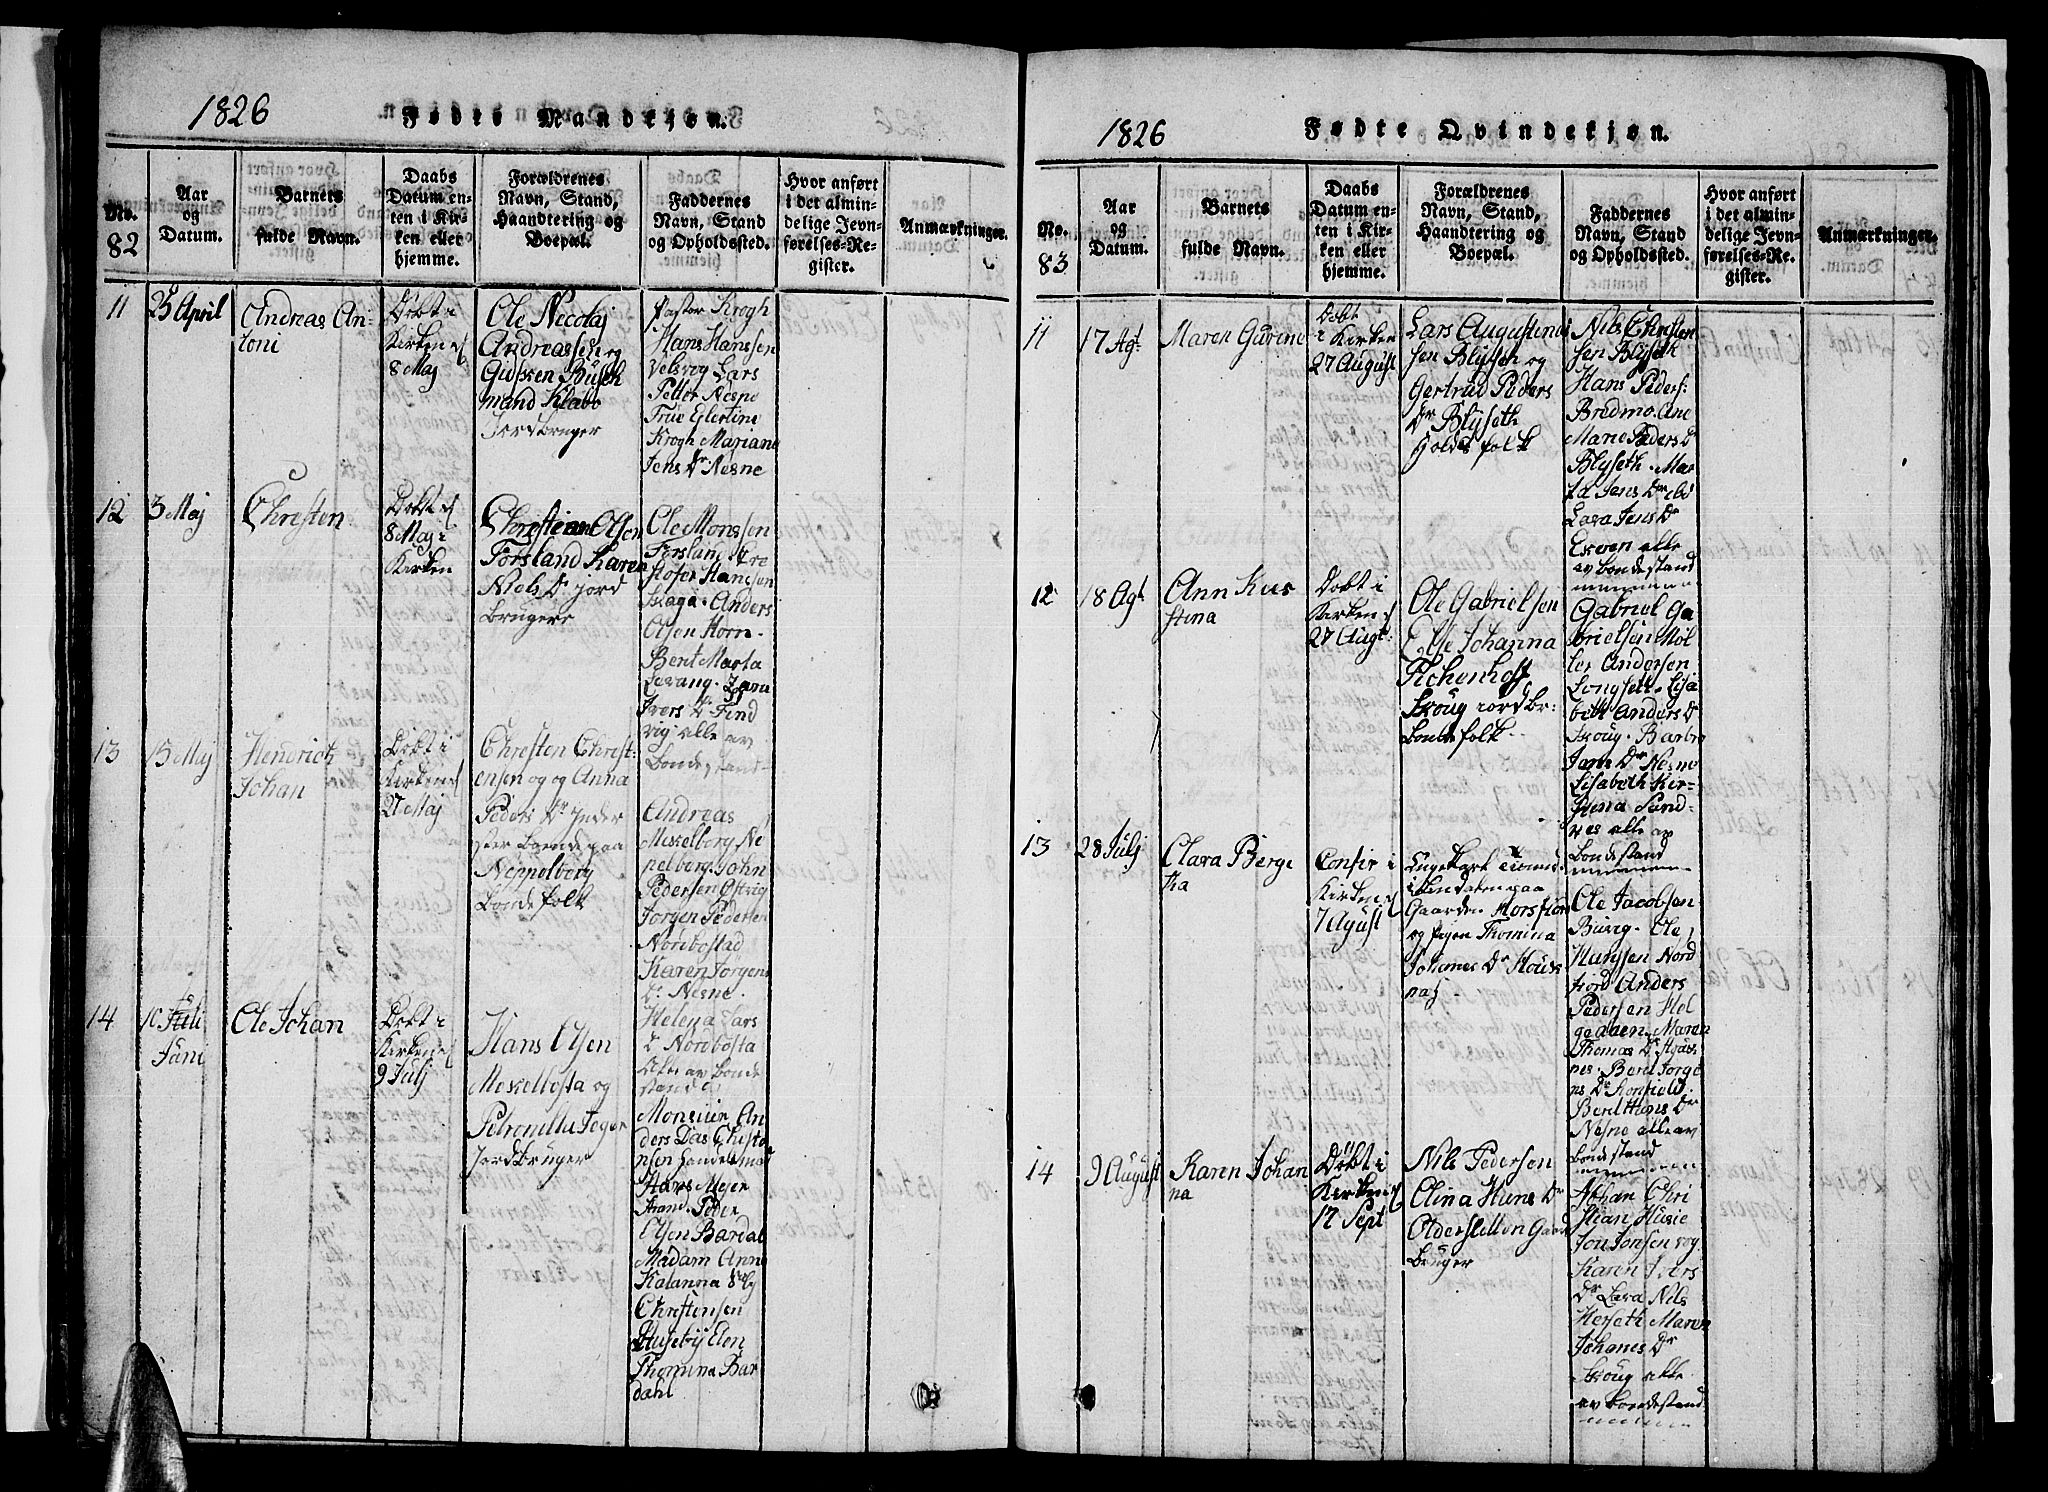 1826
Fødte Mandkjøn.
No.
82
Aar
og
Datum.
Barnets
fulde Navn.
Daabs
Datum en-
ten i Kir-
ken eller
hjemme.
Forældrenes
Navn, Stand,
Haandtering og
Boepæl.
Faddernes
Navn, Stand
og Opholdssted.
Hvor anført
i det almin-
delige Jevn-
førelses-Re-
gister.
Anmærkninger.
11
25 April
Andreas An-
toni
Døbt i
Kirken
8 Maj
Ole Necolaj
Andreassen og
Jordbruger
Pastor Krogh
Hans Hanssen
Velsvog Lars
Petter Nesne
Frue Elertine
Krogh Mariane
Jens Dr Nesne
12
3 Maj
Christen
Døbt
8 Maj i
Kirken
Christian Olsen
Forsland Karen
Niels Dr jord
Brugere
Ole Monssen
Forsland
Anders
Olsen Horn
Bent Marta
Levang.
Ivers Dr Find
vig alle av
Bondestand
13
15 Maj
Hendrich
Johan
Døbt i
Kirken
27 Maj
Christen Christ-
ensen og og Anna
Peders Dr Inder
ster Boende paa
Neppelberg
Bondefolk
Andreas
Meselberg Ne
pelberg. John
Pedersen Østvig
Jorgen Pedersen
Nordbostad
Karen Jørgens
Dr. Nesne.
Helena Lars
Dr Nordbosta
alle av Bonde
stand
14
10 Juli
Juni
Ole Johan
Døbt i
Kirken
9 Julj
Hans Olsen
Meselbosta og
Petronella Jeger
Jordbruger
Monsieur An
ders Das Christa
nsen Handelsmad
Hans Mejer
Strand. Peder
Olsen Bardal
Madam Anne
Katarina
Christensen
Husebÿ Elen
Thomina Bar
dahl
1826
Fødte Qvindekjøn.
No.
83
Aar
og
Datum.
Barnets
fulde Navn.
Daabs
Datum en-
ten i Kir-
ken eller
hjemme.
Forældrenes
Navn, Stand,
Haandtering og
Boepæl.
Faddernes
Navn, Stand
og Opholdssted.
Hvor anført
i det almin-
delige Jevn-
førelses-Re-
gister.
Anmærkninger.
11
17 Agt.
Maren Gurine
Døbt
i Kirken
27 August
Lars Augustinus
sen Blyseth og
Gertrud Peders
Dr Blyseth
Holdsfolk
Nils Christen
sen Blyseth
Hans Peders:
Bredmo. Ane
Marie Peders Dr
Blyseth. Mar
ta Jens Dr ibd
Lara Jens Dr
alle
av bondestand
12
18 Agt
Ann Kris
stina
Døbt i
Kirken
27 Augt:
Ole Gabrielsen
Else Johanna
Fichenhoff
Skoug jordbr:
Bondefolk
Gabriel Ga
brielsen Møl
ler Andersen
Longsett. Lisa
bett Anders Dr
Skoug. Barbro
Jans Dr Nesne
Lisabeth Kir-
stena Sand-
nes alle av
bondestand
13
28 Julj
Clara Berge
tha
Confir i
Kirken
7 Agust
Ungekarl
paa
Gaarden
og Pigen Thomina
Johannes Dr Houss
naj.
Ole Jacobsen
Burvig. Ole
Hanssen Nord
fiord Anders
Pedersen Hel
gedaaen. Maren
Thomas Dr
nes. Berit Jorge
ns Dr
Berit Hans Dr
Nesne alle av
bondestand
14
9 August
Karen Johan
na
Døbt i
Kirken
17 Sept
Nils Pedersen
Elina Hans Dr
Alderslellen Gaard
Bruger
Johan Chri
stian Husie
Jon Jonsen og
Karen Ivers
Dr Lara Nils
Herseth Maren
Johanes Dr
Skoug alle
av bondestand